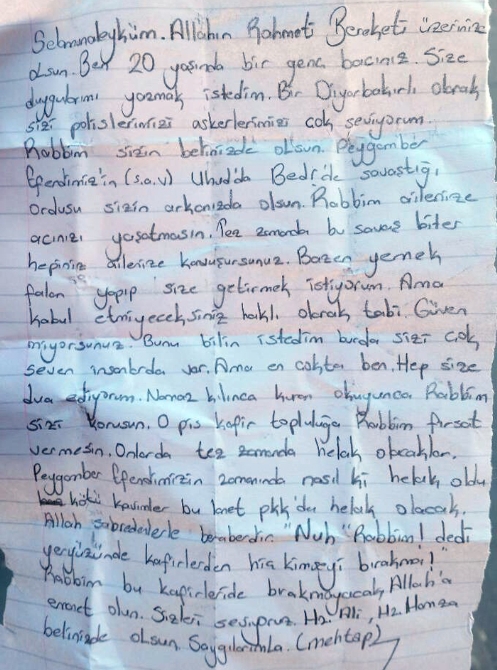 Selamnaleyküm. Allahın Rahmeti Bereketi üzerinize
olsun. Ben 20 yaşında bir genç bacınız. Size
duygularımı yazmak istedim. Bir Diyarbakırlı olarak
sizi polislerimizi askerlerimizi çok seviyorum.
Rabbim sizin belinizde olsun. Peygamber
Efendimiz'in (s.a.v) Uhud'da Bedr'de savaştığı
Ordusu sizin arkanızda olsun. Rabbim ailenize
acınızı yaşatmasın. Tez zamanda bu savaş biter
hepiniz ailenize kavuşursunuz. Bazen yemek
falan yapıp size getirmek istiyorum. Ama
kabul etmiyeceksiniz haklı olarak tabi. Güven
miyorsunuz. Bunu bilin istedim burda sizi çok
seven insanlarda var. Ama en çokta ben. Hep size
dua ediyorum. Namaz kılınca kuran okuyunca Rabbim
sizi korusun. O pis kafir topluluğa Rabbim fırsat
vermesin. Onlarda tez zamanda helak olacaklar.
Peygamber Efendimizin zamanında nasıl ki helak oldu
kötü kavimler bu lanet pkk'da helak olacak.
Allah sabredenlerle beraberdir. "Nuh "Rabbim! dedi
yeryüzünde kafirlerden hiç kimseyi bırakma!"
Rabbim bu kafirleride bırakmayacak, Allah'a
emanet olun. Sizleri seviyoruz. Hz. Ali, Hz. Hamza
belinizde olsun. Saygılarımla. (mehtap)